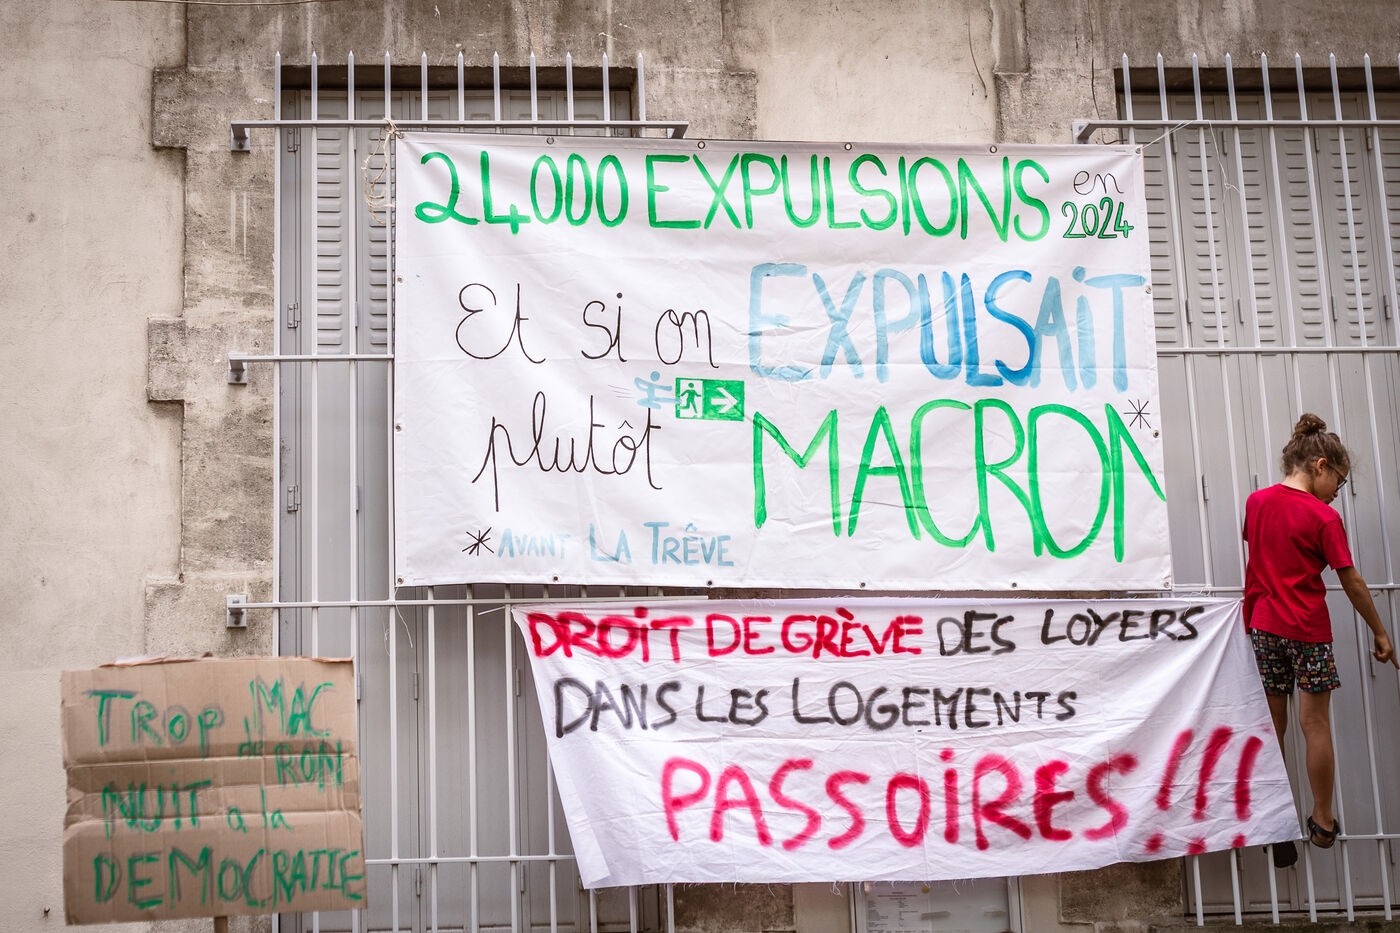 24000 EXPULSIONS en 2024
Et si on EXPULSAiT
plutôt MACRON*
*AVANT LA TRÊVE
DROiT DE GRÈVE DES LOYERS
DANS LES LOGEMENTS
PASSOiRES!!!
TROP de MAC
RON
NUIT a la
DEMOCRATIE